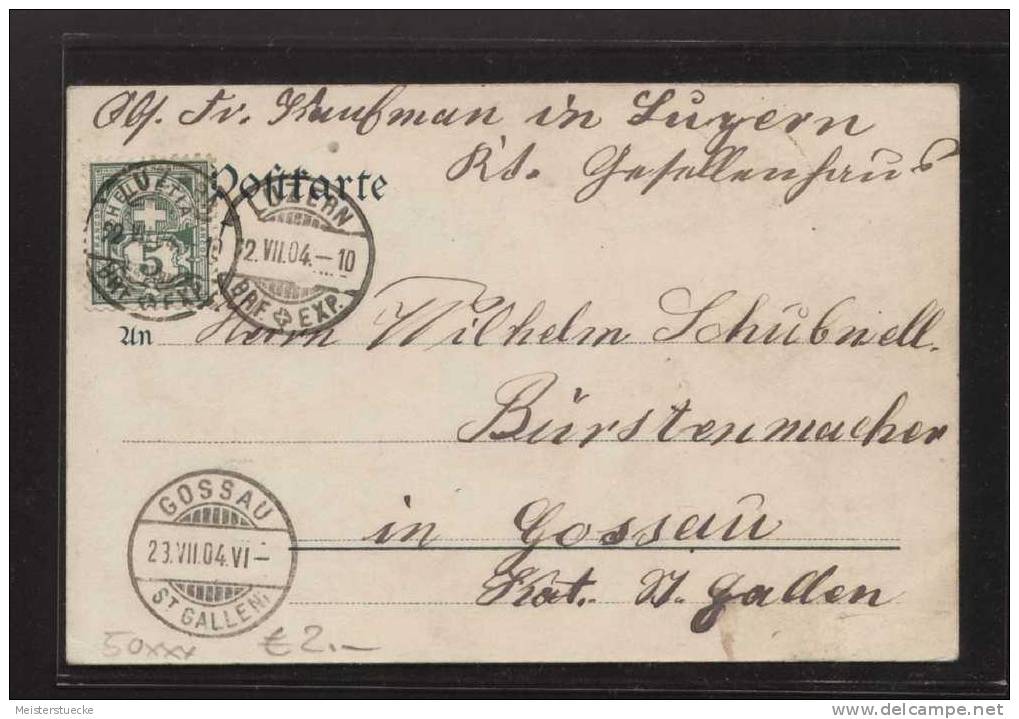 Abs. Fr. Kaufman in Luzern
Kt. Gesellenhaus
Postkarte
HELVETIA
5
LUZERN
22.VII.04.–10
BRF. EXP.
An
Herrn Wilhelm Schubnell.
Bürstenmacher
in Gossau
Kat. St. Gallen
GOSSAU
23.VII.04.VI–
ST GALLEN.
50xxx € 2.–
Meisterstuecke
www.delcampe.net